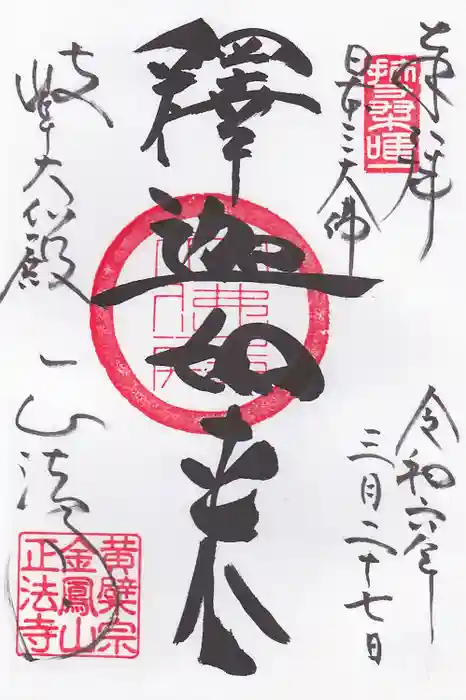 奉拝
日本三大佛
令和六年
三月二十七日
釋迦如来
岐阜大仏殿
正法
黄檗宗
金鳳山
正法寺